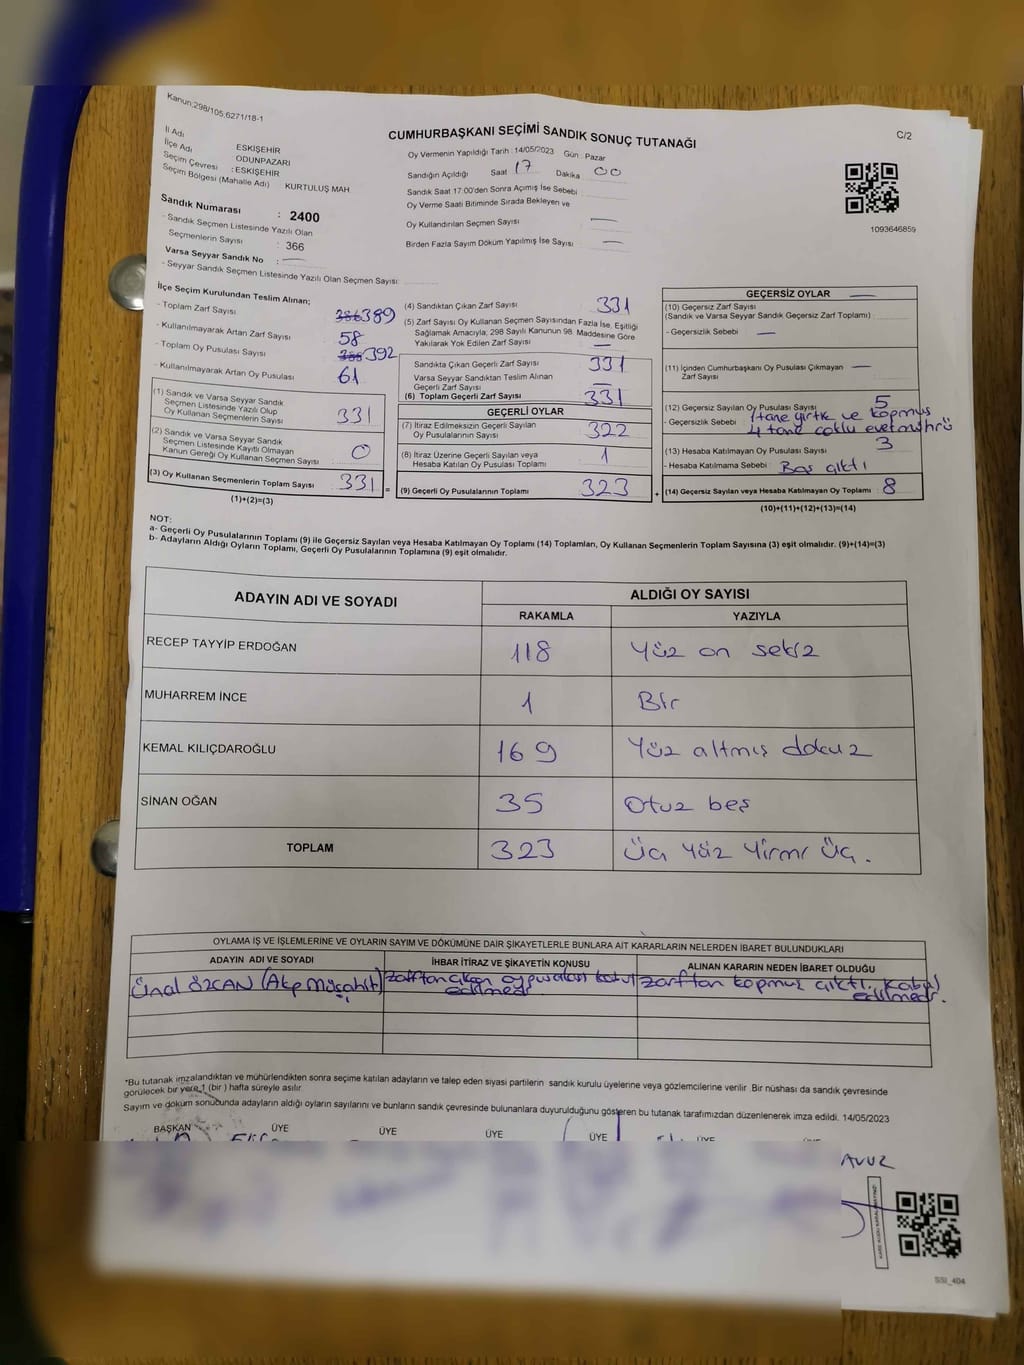 Kanun:298/105:6271/18-1
CUMHURBAŞKANI SEÇİMİ SANDIK SONUÇ TUTANAĞI
C/2
İl Adı : ESKİŞEHİR
İlçe Adı ODUNPAZARI
Seçim Çevresi : ESKİŞEHİR
Seçim Bölgesi (Mahalle Adı) KURTULUŞ MAH
Sandık Numarası : 2400
- Sandık Seçmen Listesinde Yazılı Olan
Seçmenlerin Sayısı : 366
Varsa Seyyar Sandık No : —
- Seyyar Sandık Seçmen Listesinde Yazılı Olan Seçmen Sayısı:
Oy Vermenin Yapıldığı Tarih : 14/05/2023 Gün : Pazar
Sandığın Açıldığı Saat 17 Dakika 00
Sandık Saat 17:00'den Sonra Açımış İse Sebebi
Oy Verme Saati Bitiminde Sırada Bekleyen ve
Oy Kullandırılan Seçmen Sayısı —
Birden Fazla Sayım Döküm Yapılmış İse Sayısı —
1093646859
İlçe Seçim Kurulundan Teslim Alınan;
- Toplam Zarf Sayısı 386 389
- Kullanılmayarak Artan Zarf Sayısı 58
- Toplam Oy Pusulası Sayısı 392
- Kullanılmayarak Artan Oy Pusulası 61
(1) Sandık ve Varsa Seyyar Sandık
Seçmen Listesinde Yazılı Olup
Oy Kullanan Seçmenlerin Sayısı 331
(2) Sandık ve Varsa Seyyar Sandık
Seçmen Listesinde Kayıtlı Olmayan
Kanun Gereği Oy Kullanan Seçmen Sayısı 0
(3) Oy Kullanan Seçmenlerin Toplam Sayısı 331 =
(1)+(2)=(3)
(4) Sandıktan Çıkan Zarf Sayısı 331
(5) Zarf Sayısı Oy Kullanan Seçmen Sayısından Fazla İse, Eşitliği
Sağlamak Amacıyla; 298 Sayılı Kanunun 98. Maddesine Göre
Yakılarak Yok Edilen Zarf Sayısı —
Sandıkta Çıkan Geçerli Zarf Sayısı 331
Varsa Seyyar Sandıktan Teslim Alınan
Geçerli Zarf Sayısı —
(6) Toplam Geçerli Zarf Sayısı 331
GEÇERLİ OYLAR
(7) İtiraz Edilmeksizin Geçerli Sayılan
Oy Pusulalarının Sayısı 322
(8) İtiraz Üzerine Geçerli Sayılan veya
Hesaba Katılan Oy Pusulası Toplamı 1
(9) Geçerli Oy Pusulalarının Toplamı 323 +
GEÇERSİZ OYLAR —
(10) Geçersiz Zarf Sayısı
(Sandık ve Varsa Seyyar Sandık Geçersiz Zarf Toplamı)
- Geçersizlik Sebebi —
(11) İçinden Cumhurbaşkanı Oy Pusulası Çıkmayan —
Zarf Sayısı
(12) Geçersiz Sayılan Oy Pusulası Sayısı 5
- Geçersizlik Sebebi 1 tane yırtık ve kopmuş
4 tane çoklu evet mührü
(13) Hesaba Katılmayan Oy Pusulası Sayısı 3
- Hesaba Katılmama Sebebi Boş çıktı
(14) Geçersiz Sayılan veya Hesaba Katılmayan Oy Toplamı 8
(10)+(11)+(12)+(13)=(14)
NOT:
a- Geçerli Oy Pusulalarının Toplamı (9) ile Geçersiz Sayılan veya Hesaba Katılmayan Oy Toplamı (14) Toplamları, Oy Kullanan Seçmenlerin Toplam Sayısına (3) eşit olmalıdır. (9)+(14)=(3)
b- Adayların Aldığı Oyların Toplamı, Geçerli Oy Pusulalarının Toplamına (9) eşit olmalıdır.
ADAYIN ADI VE SOYADI ALDIĞI OY SAYISI
RAKAMLA YAZIYLA
RECEP TAYYİP ERDOĞAN 118 Yüz on sekiz
MUHARREM İNCE 1 Bir
KEMAL KILIÇDAROĞLU 169 Yüz altmış dokuz
SİNAN OĞAN 35 Otuz beş
TOPLAM 323 Üç Yüz Yirmi Üç.
OYLAMA İŞ VE İŞLEMLERİNE VE OYLARIN SAYIM VE DÖKÜMÜNE DAİR ŞİKAYETLERLE BUNLARA AİT KARARLARIN NELERDEN İBARET BULUNDUKLARI
ADAYIN ADI VE SOYADI İHBAR İTİRAZ VE ŞİKAYETİN KONUSU ALINAN KARARIN NEDEN İBARET OLDUĞU
Ünal ÖZCAN (Akp Müşahit) zarftan çıkan oy pusulası kabul edilmedi zarftan kopmuş çıktı. Kabul edilmedi.
*Bu tutanak imzalandıktan ve mühürlendikten sonra seçime katılan adayların ve talep eden siyasi partilerin sandık kurulu üyelerine veya gözlemcilerine verilir. Bir nüshası da sandık çevresinde
görülecek bir yere 1 (bir ) hafta süreyle asılır.
Sayım ve döküm sonucunda adayların aldığı oyların sayılarını ve bunların sandık çevresinde bulunanlara duyurulduğunu gösteren bu tutanak tarafımızdan düzenlenerek imza edildi. 14/05/2023
BAŞKAN ÜYE ÜYE ÜYE ÜYE ÜYE
SSI_404